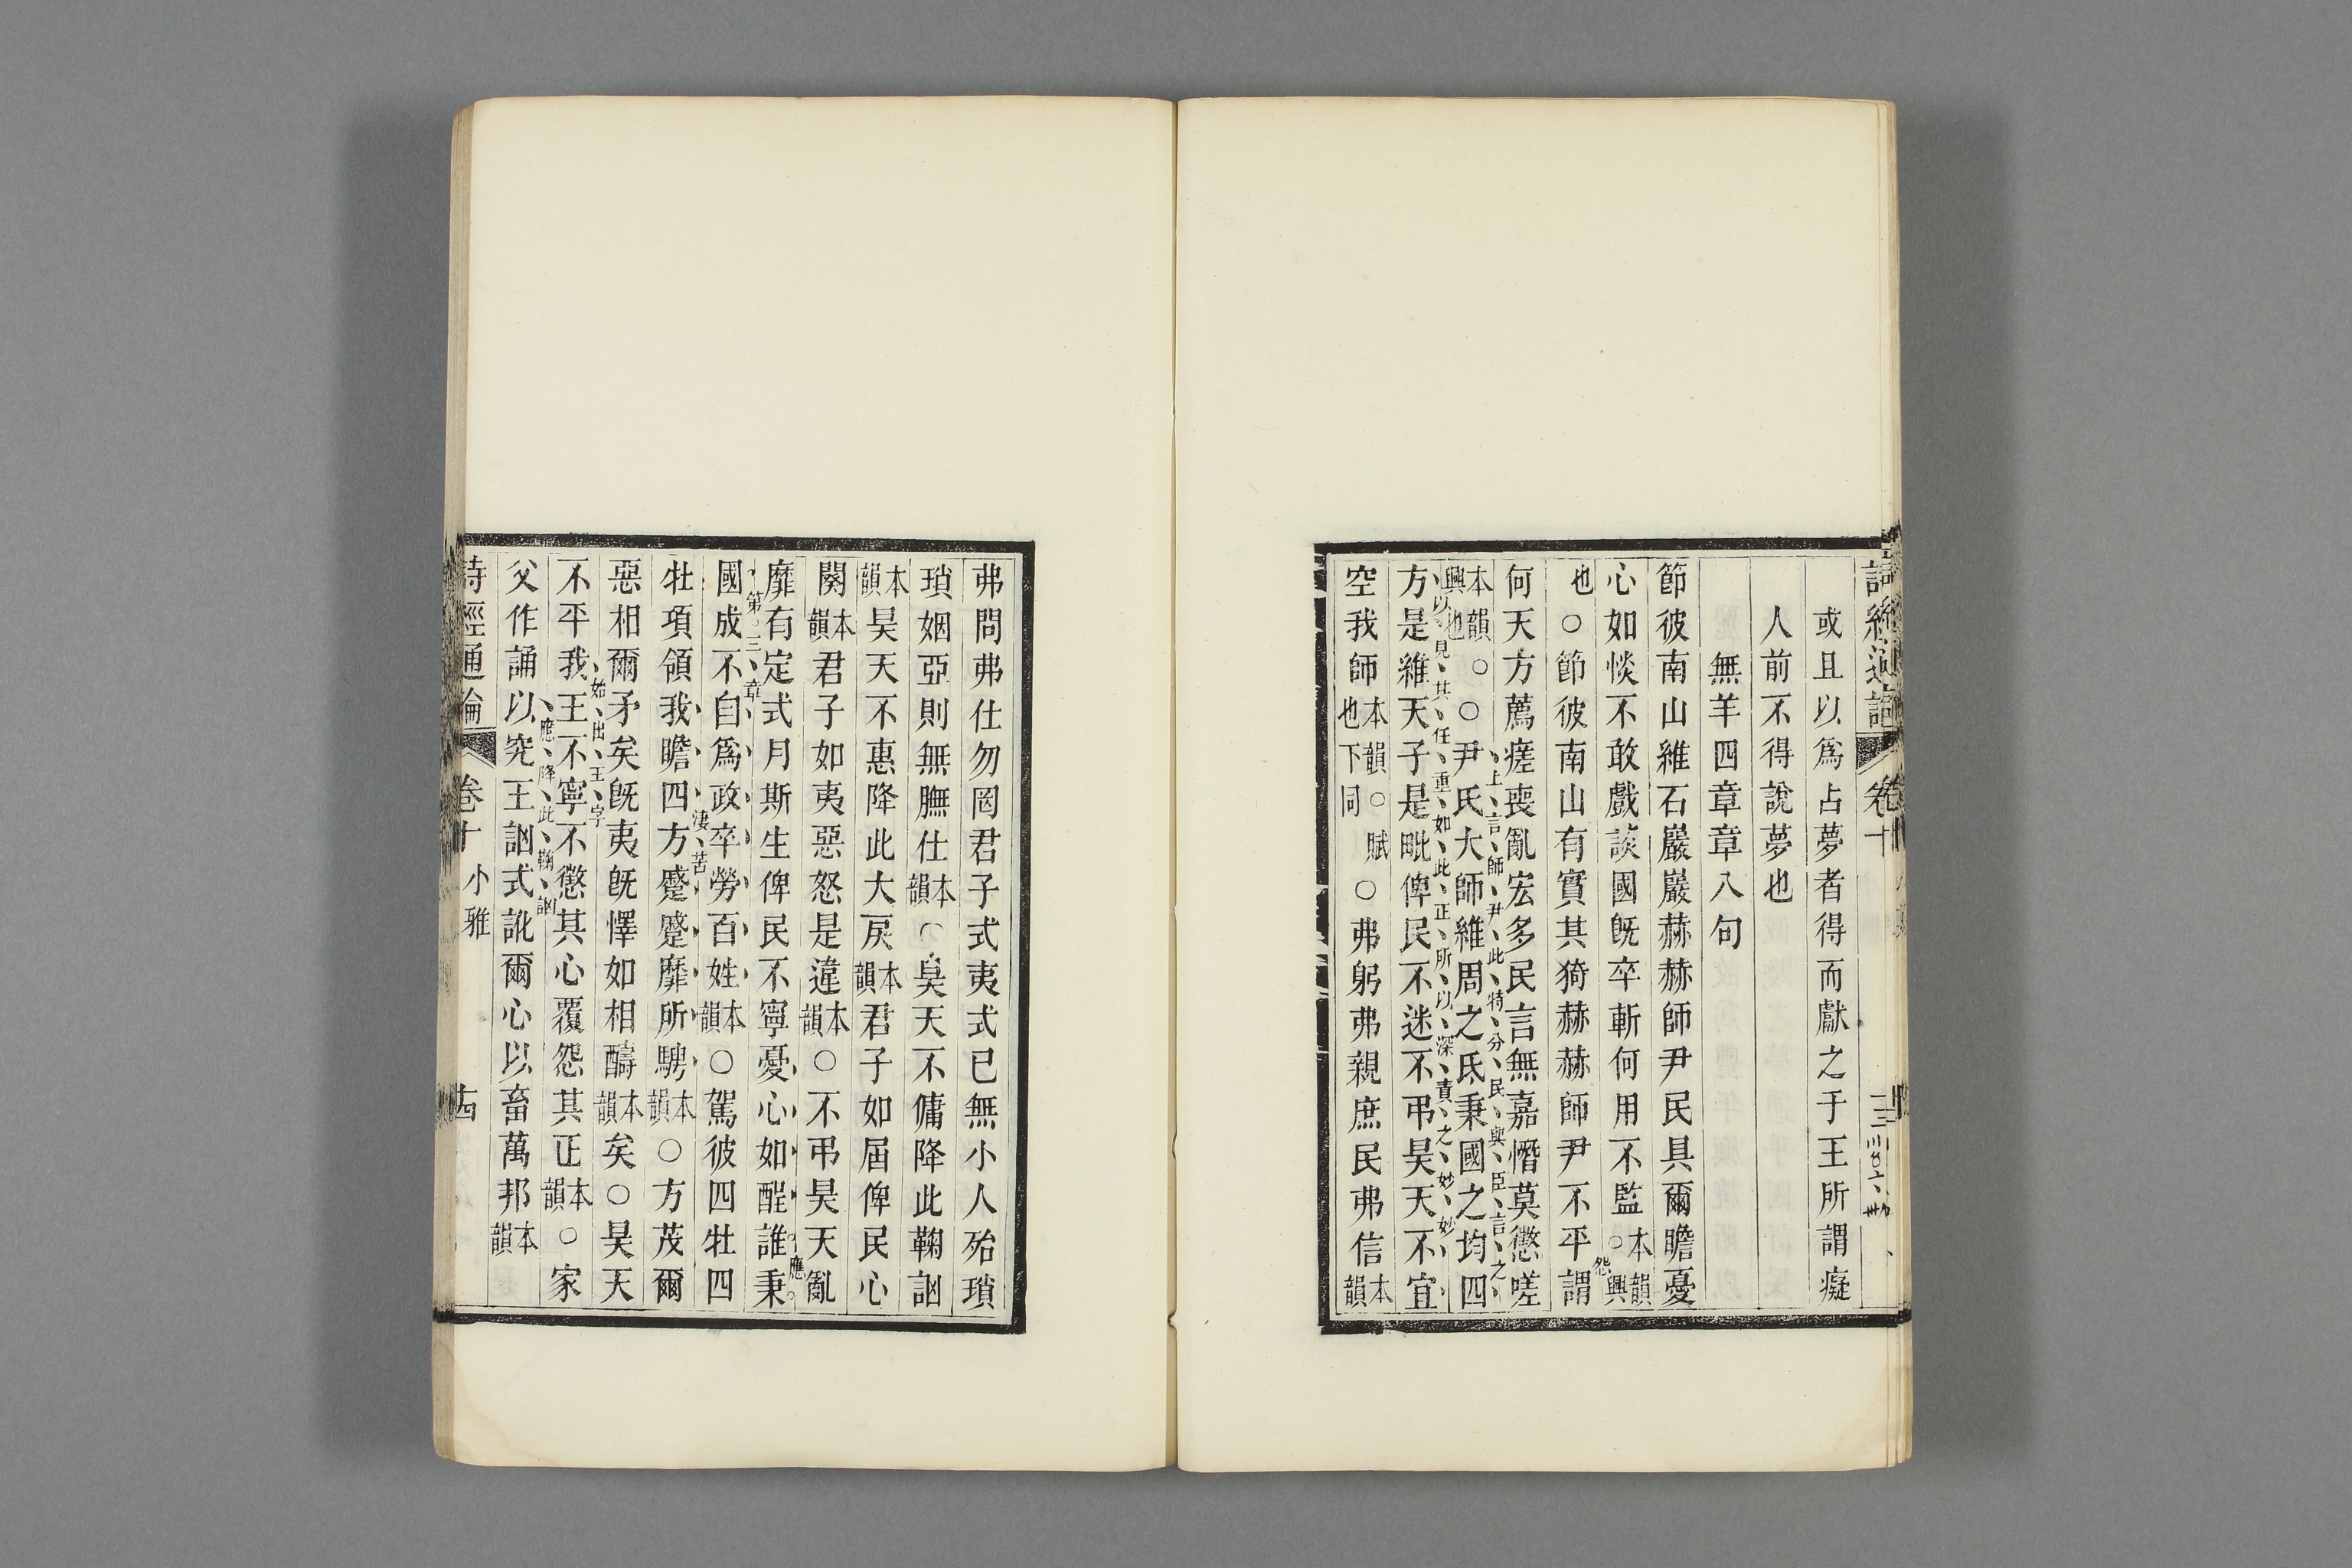 詩經通論 卷十
或且以爲占夢者得而獻之于王所謂癡
人前不得說夢也
無羊四章章八句
節彼南山維石巖巖赫赫師尹民具爾瞻憂
心如惔不敢戲談國旣卒斬何用不監本韻○興
也○節彼南山有實其猗赫赫師尹不平謂
怨
何天方薦瘥喪亂宏多民言無嘉憯莫懲嗟
上言師尹此特分民與臣言之
本韻興也○○尹氏大師維周之氐秉國之均四
以見其任重如此正所以深責之妙妙
方是維天子是毗俾民不迷不弔昊天不宜
空我師本韻○賦也下同○弗躬弗親庶民弗信本韻
弗問弗仕勿罔君子式夷式已無小人殆瑣
瑣姻亞則無膴仕本韻○昊天不傭降此鞠訩
本韻昊天不惠降此大戾本韻君子如屆俾民心
闋本韻君子如夷惡怒是違本韻○不弔昊天亂
應
靡有定式月斯生俾民不寧憂心如酲誰秉
第二章
國成不自爲政卒勞百姓本韻○駕彼四牡四
淒苦
牡項領我瞻四方蹙蹙靡所騁本韻○方茂爾
惡相爾矛矣旣夷旣懌如相醻本韻矣○昊天
始出王字
不平我王不寧不懲其心覆怨其正本韻○家
應降此鞠訩
父作誦以究王訩式訛爾心以畜萬邦本韻
詩經通論 卷十 小雅 十四